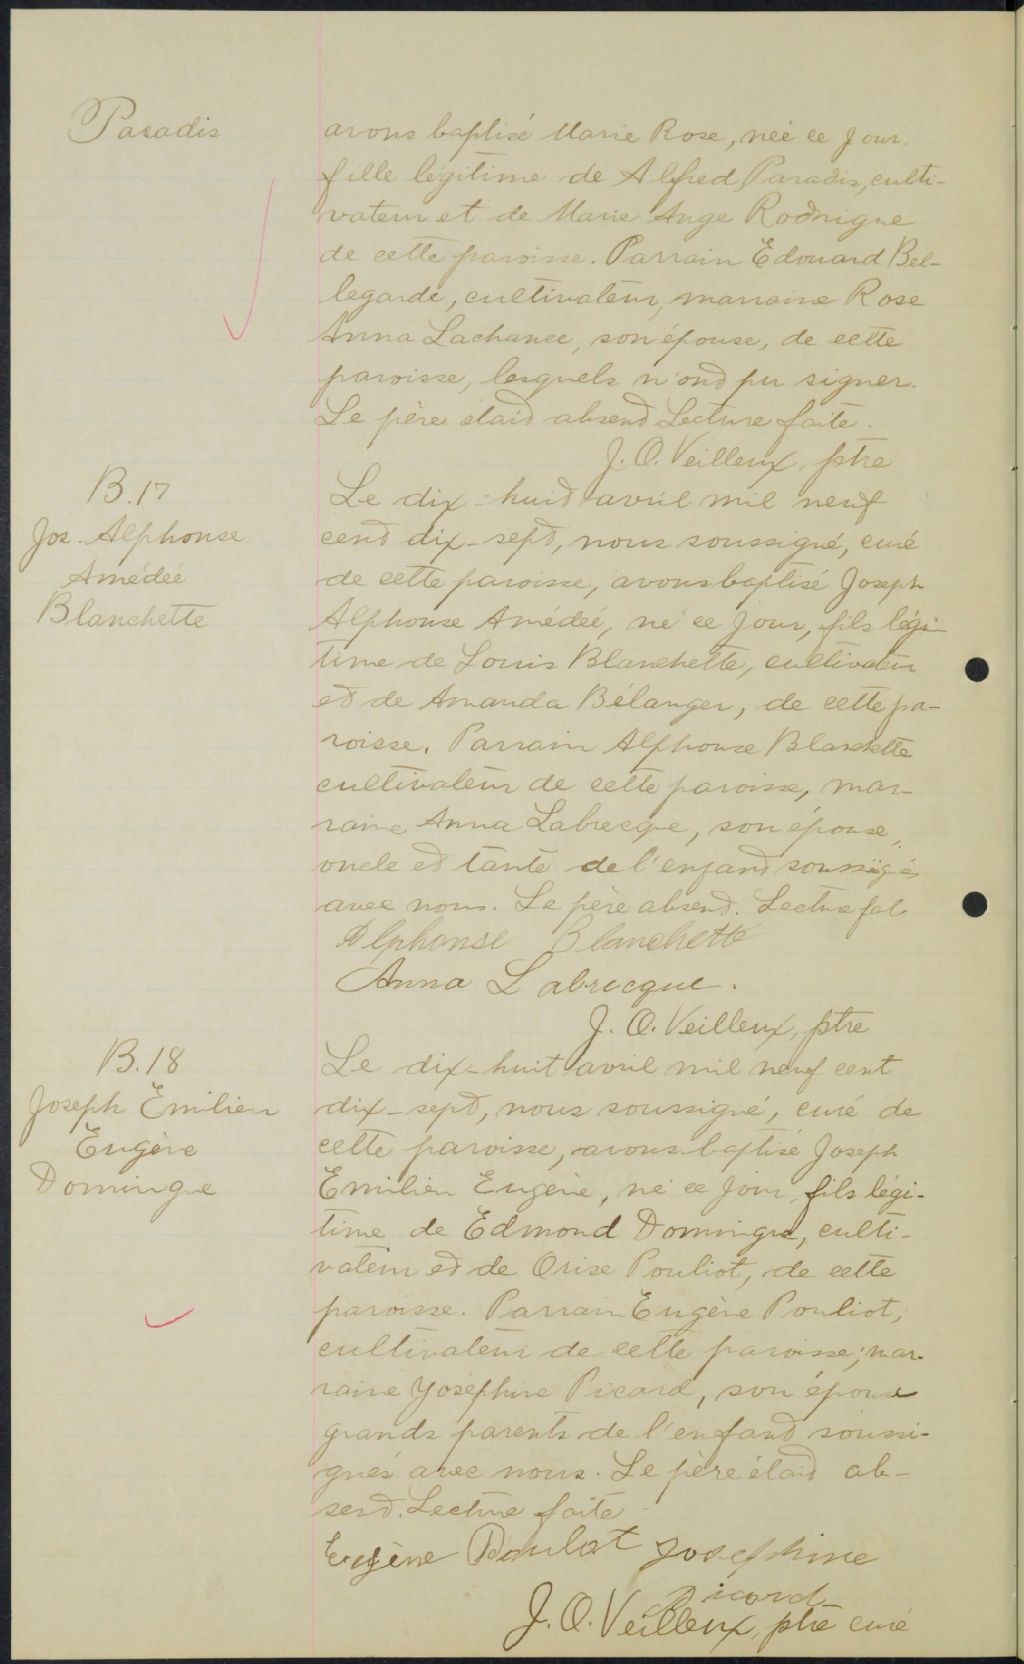 Paradis
avons baptisé Marie Rose, née ce jour,
fille légitime de Alfred Paradis, culti-
vateur et de Marie Ange Rodrigue
de cette paroisse. Parrain Edouard Bel-
legarde, cultivateur, marraine Rose
Anna Lachance, son épouse, de cette
paroisse, lesquels n'ont pu signer.
Le père était absent Lecture faite.
J. O. Veilleux, ptre
B. 17
Jos. Alphonse
Amédée
Blanchette
Le dix-huit avril mil neuf
cent dix-sept, nous soussigné, curé
de cette paroisse, avons baptisé Joseph
Alphonse Amédée, né ce jour, fils légi-
time de Louis Blanchette, cultivateur
et de Amanda Bélanger, de cette pa-
roisse. Parrain Alphonse Blanchette
cultivateur de cette paroisse, mar-
raine Anna Labrecque, son épouse,
oncle et tante de l'enfant soussignés
avec nous. Le père absent. Lecture
Alphonse Blanchette
Anna Labrecque.
J. O. Veilleux, ptre
B. 18
Joseph Emilien
Eugène
Domingue
Le dix-huit avril mil neuf cent
dix-sept, nous soussigné, curé de
cette paroisse, avons baptisé Joseph
Emilien Eugène, né ce jour, fils légi-
time de Edmond Domingue, culti-
vateur et de Orise Pouliot, de cette
paroisse. Parrain Eugène Pouliot,
cultivateur de cette paroisse; mar-
raine Joséphine Picard, son épouse
grands parents de l'enfant soussi-
gnés avec nous. Le père était ab-
sent. Lecture faite
Eugène Poulot Josephine
Picard
J. O. Veilleux, ptre curé